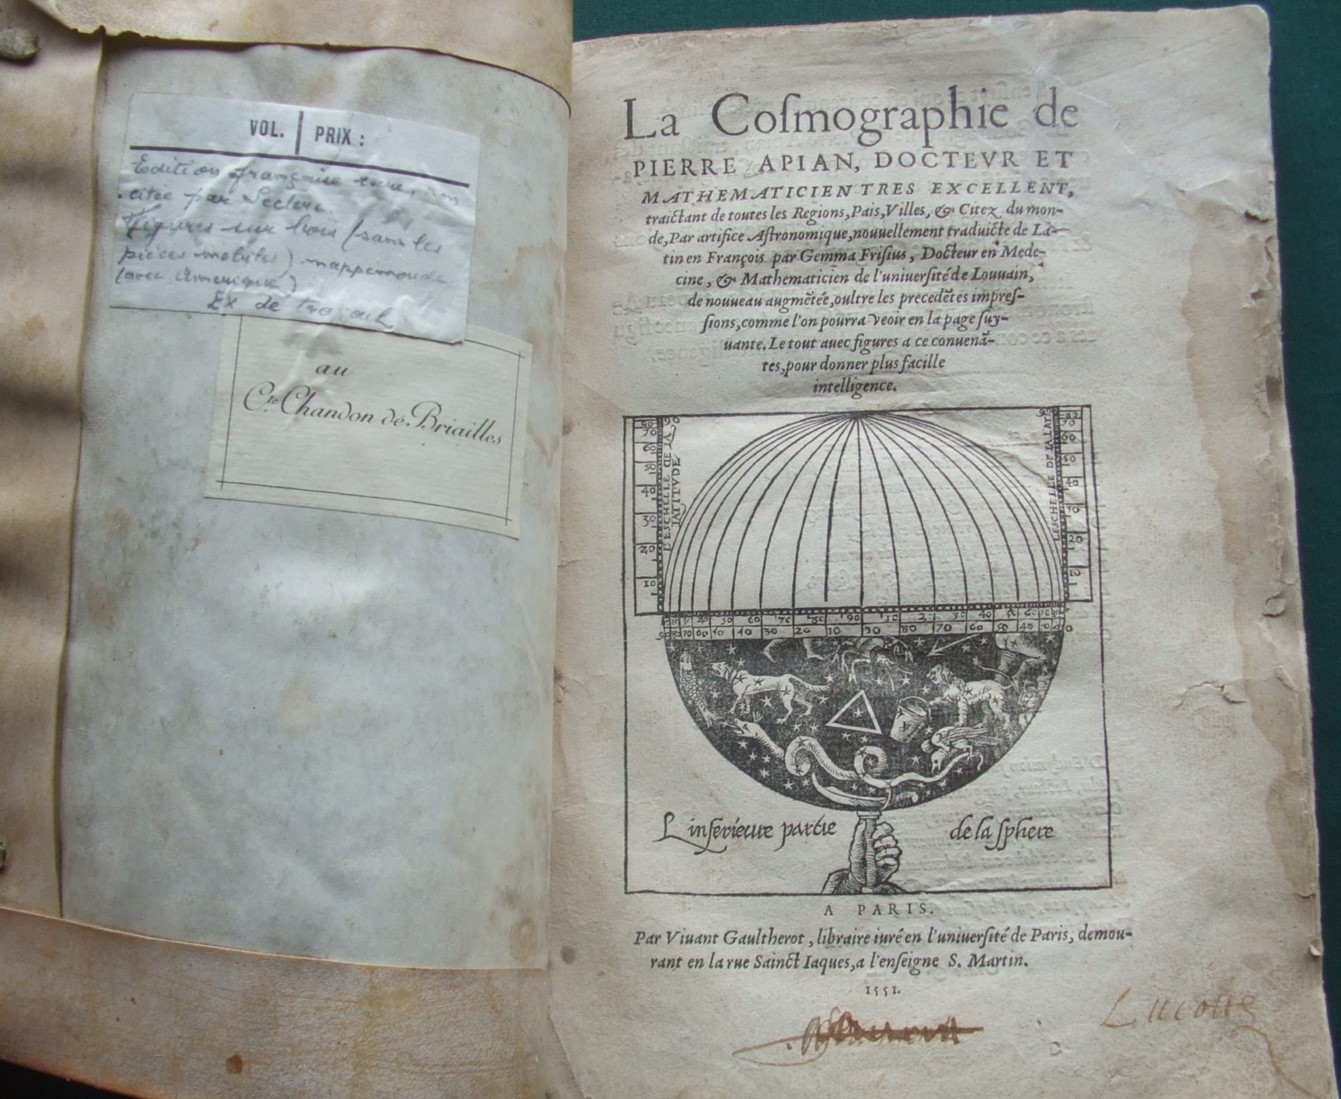 VOL. | PRIX :
Edition française rare, non
citée par Leclerc
Figures sur bois (sans les
pièces mobiles) mappemonde
(avec Amérique)
Ex de travail
au
Cte Chandon de Briailles
La Coſmographie de
PIERRE APIAN, DOCTEVR ET
MATHEMATICIEN TRES EXCELLENT,
traictant de toutes les Regions, Pais, Villes, & Citez du mon-
de, Par artifice Aſtronomique, nouuellement traduicte de La-
tin en François par Gemma Friſius, Docteur en Mede-
cine, & Mathematicien de l'uniuerſité de Louuain,
de nouueau augmētée, oultre les precedētes impreſ-
ſions, comme l'on pourra veoir en la page ſuy-
uante. Le tout auec figures a ce conuenā-
tes, pour donner plus facille
intelligence.
L'ESCHELLE DE LA
LATITVDE
L'inferieure partie de la ſphere
A PARIS.
Par Viuant Gaultherot, libraire iuré en l'uniuerſité de Paris, demou-
rant en la rue Sainct Iaques, a l'enſeigne S. Martin.
1551.
Lucotte